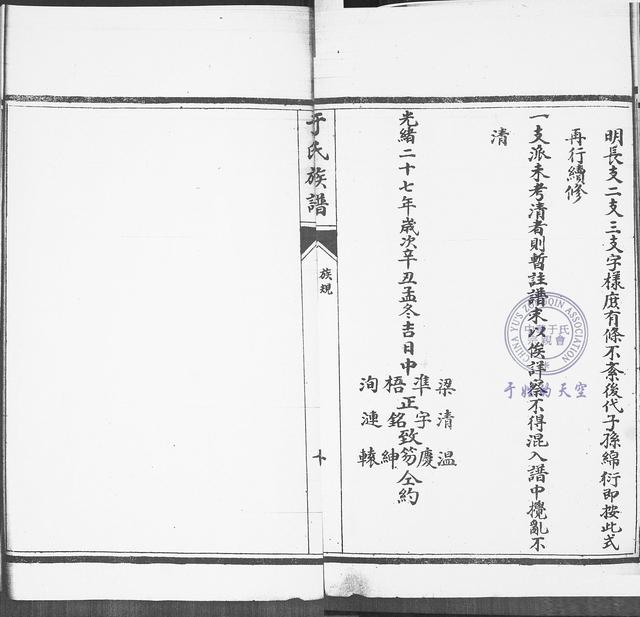 明長支二支三支字樣庶有條不紊後代子孫綿衍即按此式
再行續修
一支派未考清者則暫註譜末以俟詳察不得混入譜中攪亂不
清
光緒二十七年歲次辛丑孟冬吉日中正致仝約
梁清溫
準字慶
梧銘紳
洵漣轅
于氏族譜
族規
CHINA YU'S ASSOCIATION
于氏
親會
于姓的天空